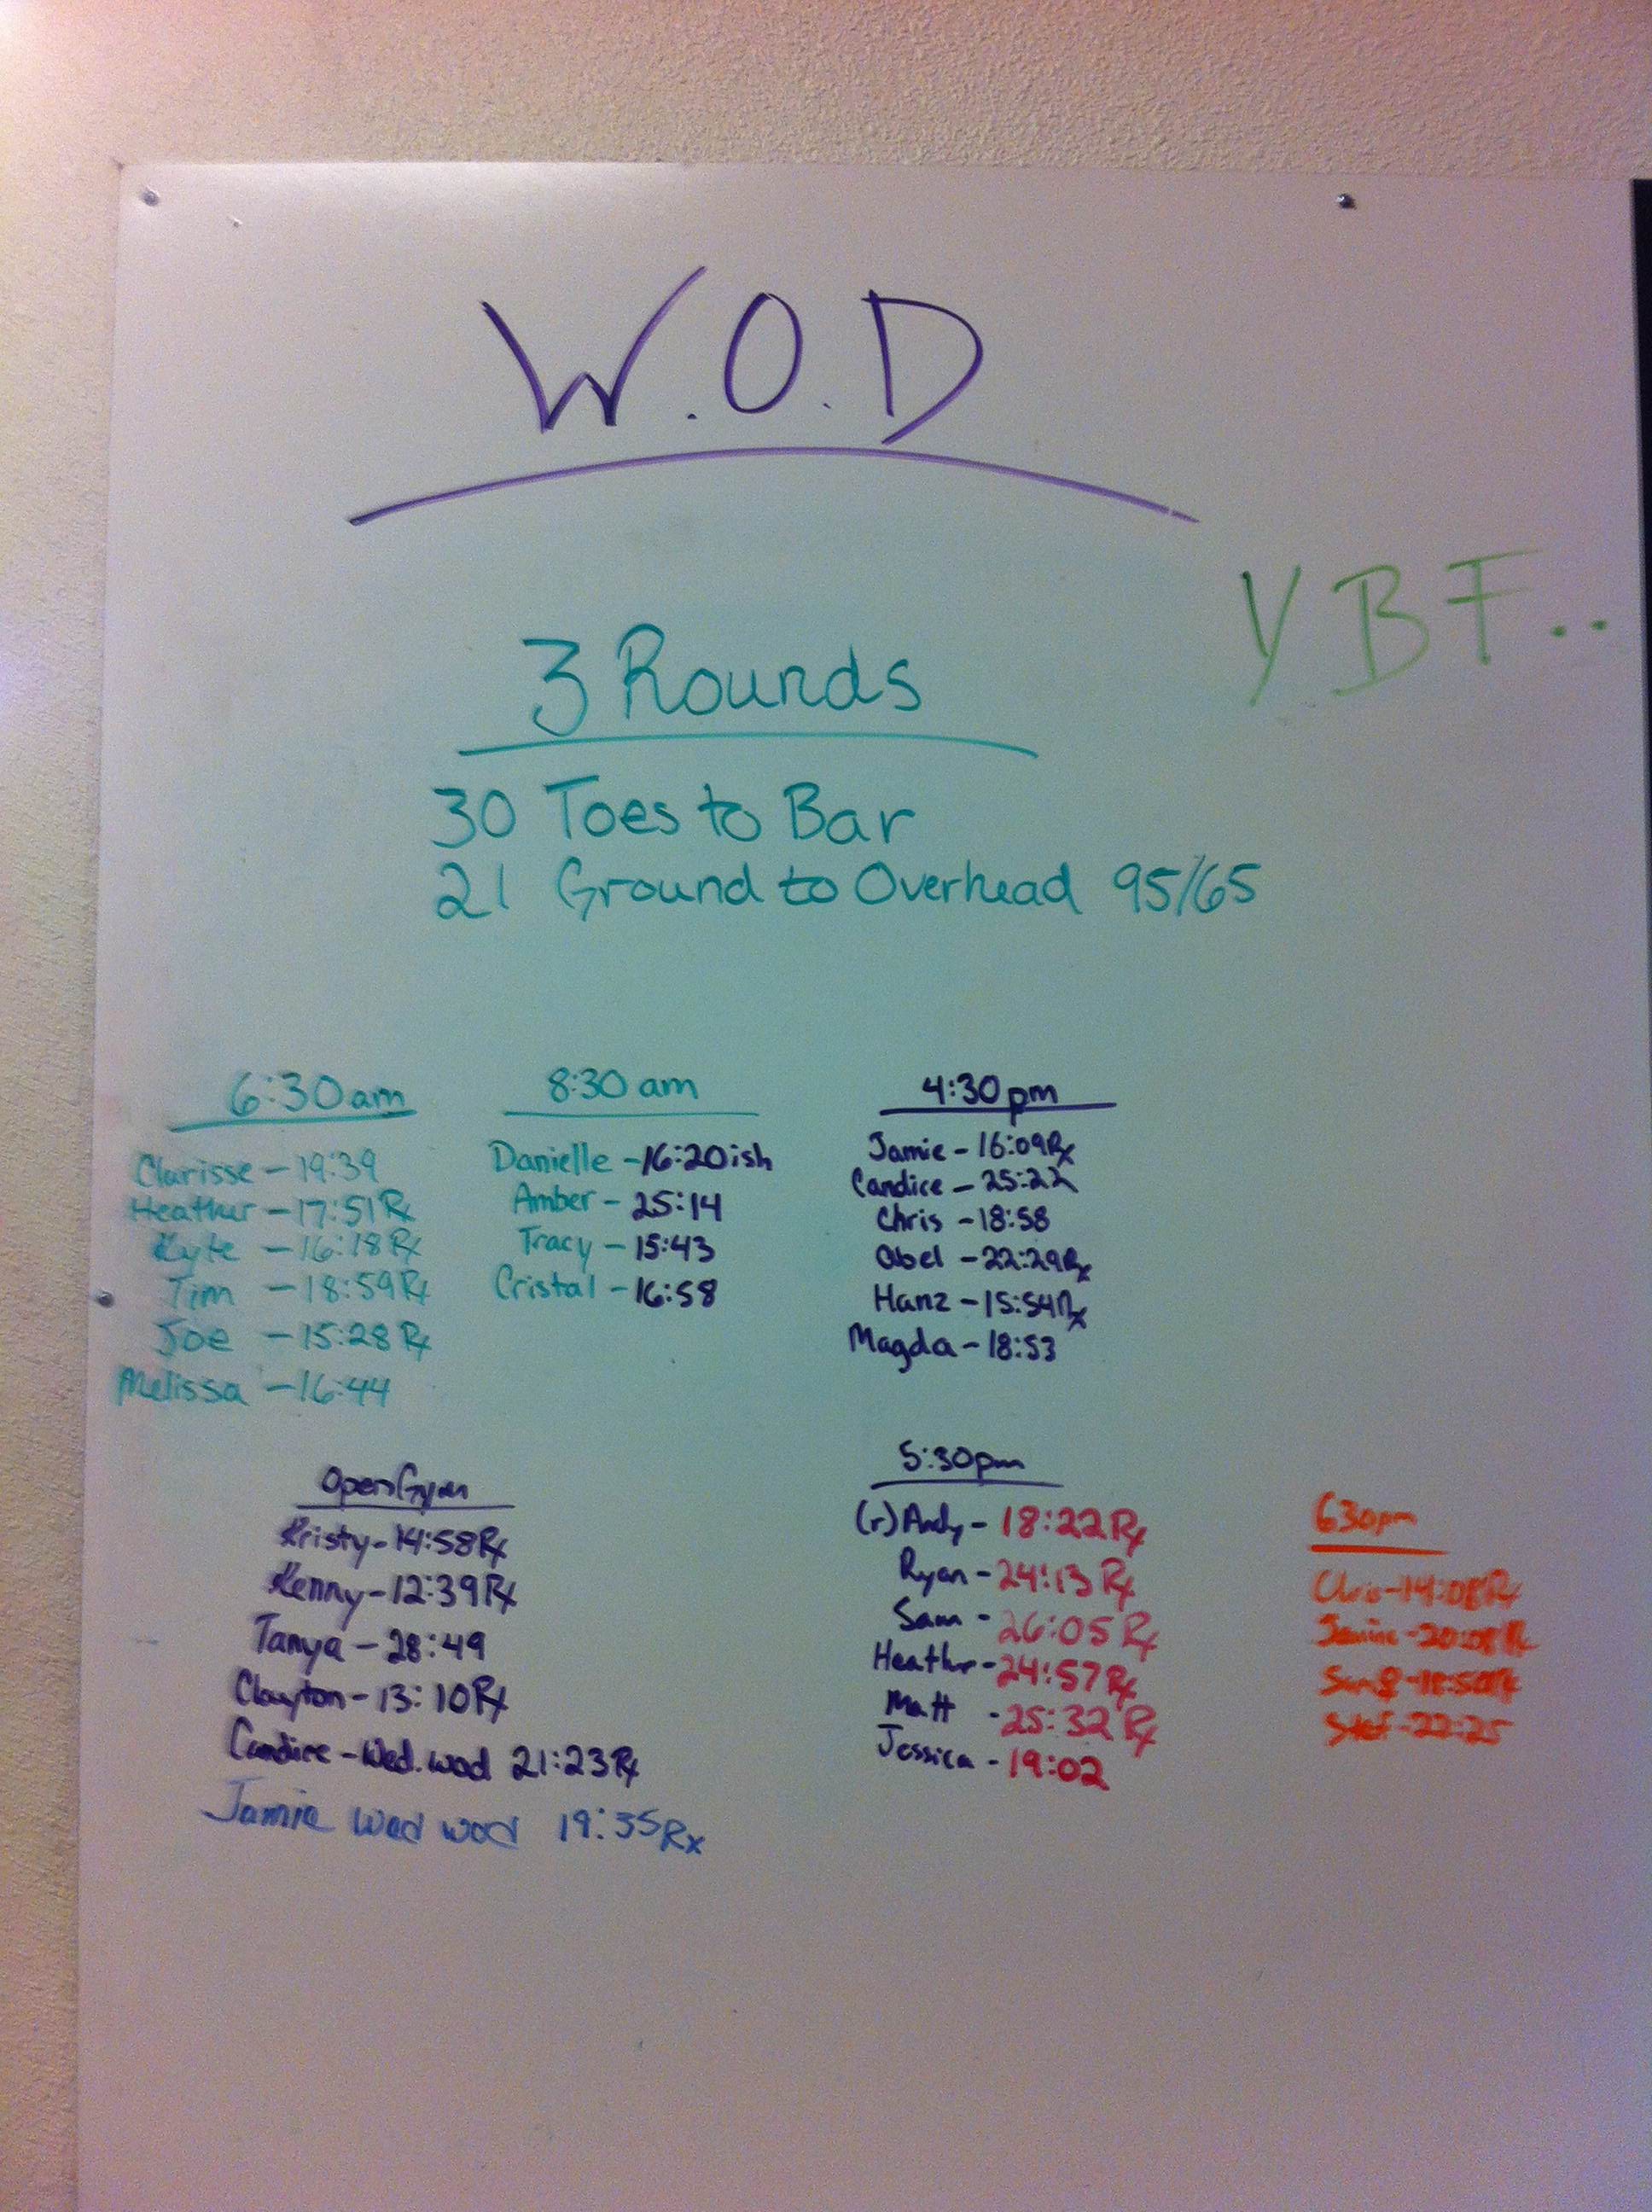 W.O.D
YBF..
3 Rounds
30 Toes to Bar
21 Ground to Overhead 95/65
6:30am
Clarisse - 19:39
Heather - 17:51 Rx
Kyle - 16:18 Rx
Tim - 18:59 Rx
Joe - 15:28 Rx
Melissa - 16:44
8:30 am
Danielle - 16:20ish
Amber - 25:14
Tracy - 15:43
Cristal - 16:58
4:30pm
Jamie - 16:09 Rx
Candice - 25:22
Chris - 18:58
Abel - 22:29 Rx
Hanz - 15:54 Rx
Magda - 18:53
Open Gym
Kristy - 14:58 Rx
Kenny - 12:39 Rx
Tanya - 28:49
Clayton - 13:10 Rx
Candice - Wed. wod 21:23 Rx
Jamie Wed wod 19:35 Rx
5:30pm
(r) Andy - 18:22 Rx
Ryan - 24:13 Rx
Sam - 26:05 Rx
Heather - 24:57 Rx
Matt - 25:32 Rx
Jessica - 19:02
630pm
Chris - 14:08 Rx
20:08 Rx
Stef - 22:25